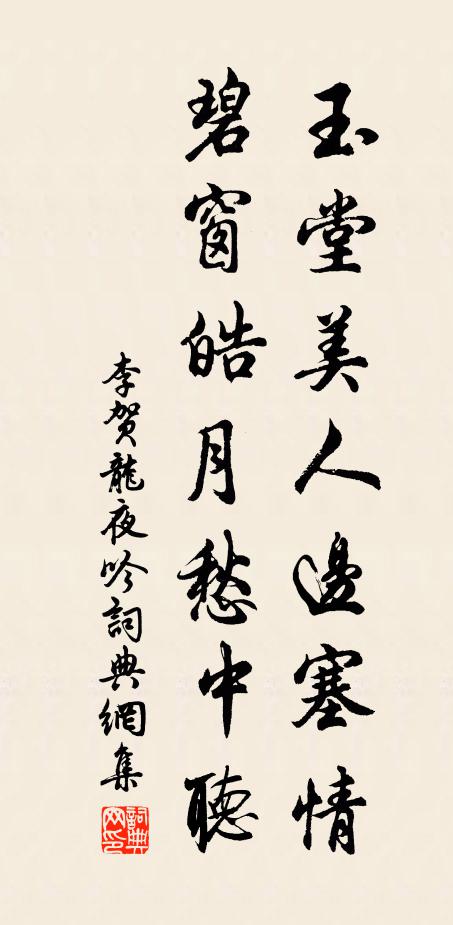 玉堂美人邊塞情
碧窗皓月愁中聽
李賀龍夜吟詞典網集
詞典網印